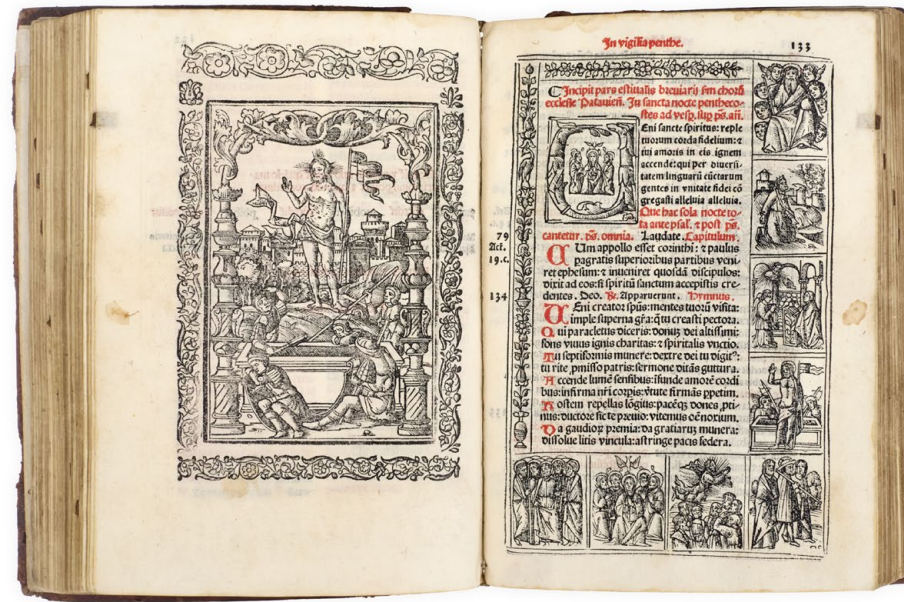 In vigilia penthe.
133
Incipit pars estiualis breuiarij scđm chorũ
ecclesie Patauieñ. In sancta nocte pentheco-
stes ad vesp̃. sup̲ p̃s. añ.
Eni sancte spiritus: reple
tuorum corda fidelium: ⁊
tui amoris in eis ignem
accende: qui per diuersi-
tatem linguarũ cũctarum
gentes in vnitate fidei cõ
gregasti alleluia alleluia.
Que hac sola nocte to-
ta ante psal. ⁊ post p̃s.
cantetur. p̃s. omnia. Laudate. Capitulum.
79
Act.
19.c.
CUm appollo esset corinthi: ⁊ paulus
pagratis superioribus partibus veni-
ret ephesum: ⁊ inueniret quosdã discipulos:
dixit ad eos: si spiritũ sanctum accepistis cre-
dentes. Deo. ℟. Apparuerunt. Hymnus.
134
VEni creator spũs: mentes tuorũ visita:
imple superna gr̃a: q̃ tu creasti pectora.
Qui paracletus diceris: donuꝫ dei altissimi:
fons viuus ignis charitas: ⁊ spiritalis vnctio.
Tu septiformis munere: dextre dei tu digitꝰ:
tu rite ꝓmisso patris: sermone ditãs guttura.
Accende lumẽ sensibus: ifunde amorẽ cordi
bus: infirma nr̃i corꝑis: v̓tute firmãs ꝑpetim.
Hostem repellas lõgius: pacẽqꝫ dones ꝓti-
nus: ductore sic te preuio: vitemus oẽ noxium.
Da gaudioꝝ premia: da gratiaruꝫ munera:
dissolue litis vincula: astringe pacis federa.